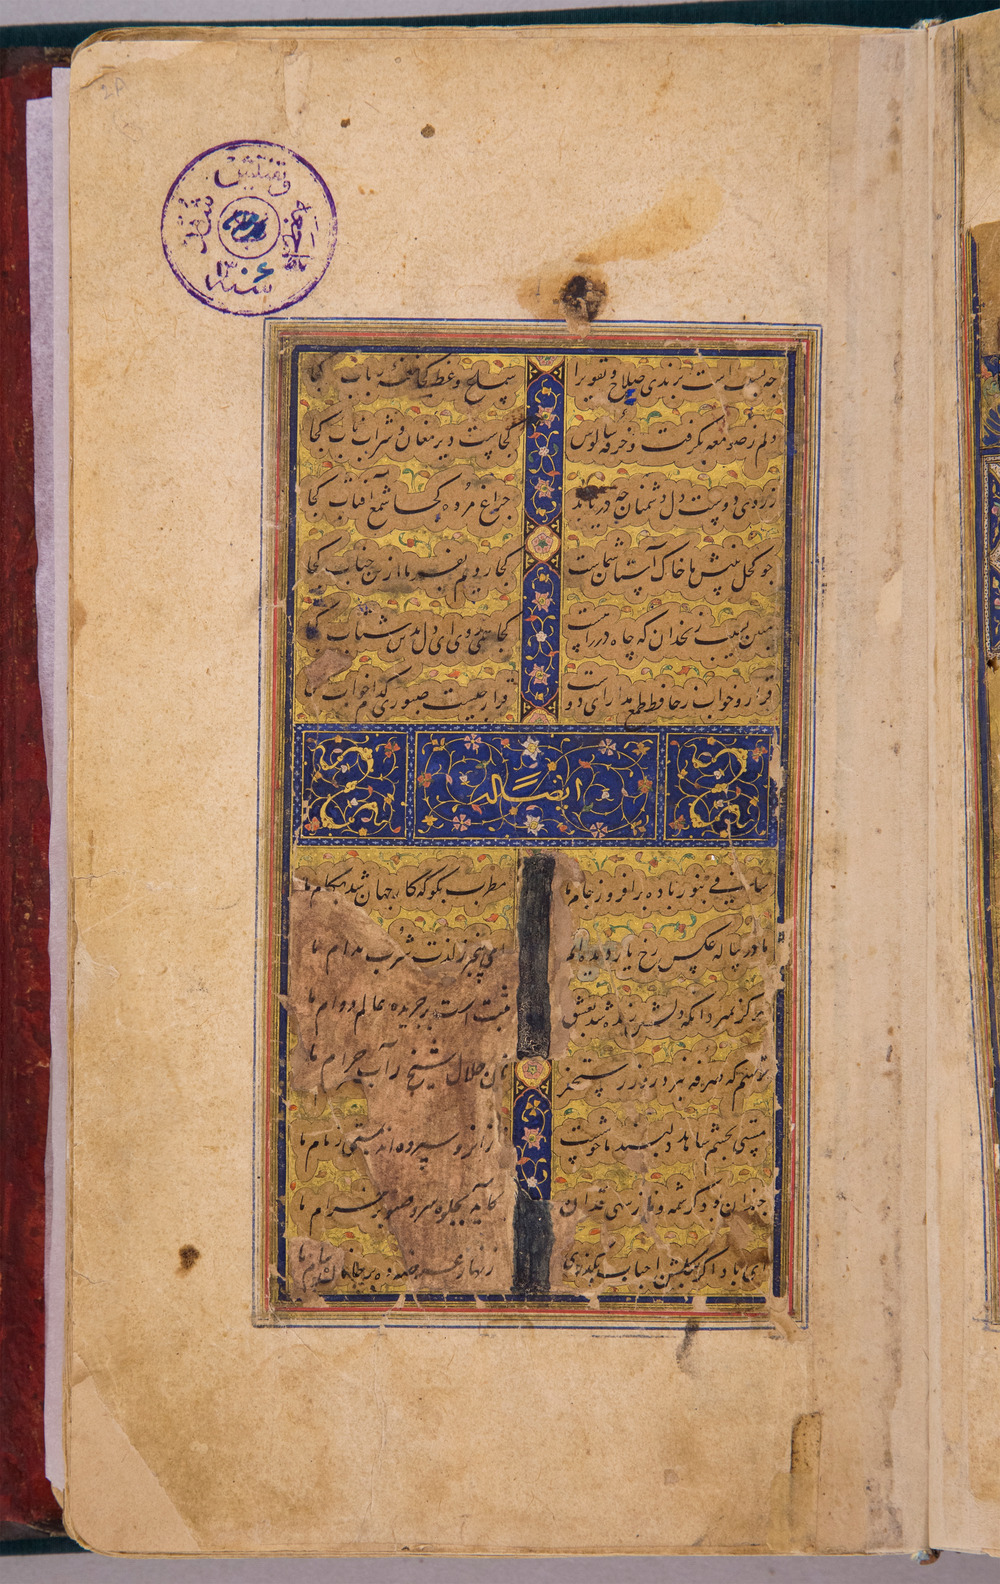 چه نسبت است برندی صلاح و تقوی را سماع وعظ کجا نغمه رباب کجا
دلم ز صومعه بگرفت و خرقه سالوس کجاست دیر مغان و شراب ناب کجا
ز روی دوست دل دشمنان چه دریابد چراغ مرده کجا شمع آفتاب کجا
چو کحل بینش ما خاک آستان شماست کجا رویم بفرما ازین جناب کجا
مبین بسیب زنخدان که چاه در راهست کجا همی روی ای دل بدین شتاب کجا
قرار و خواب ز حافظ طمع مدار ای دوست قرار چیست صبوری کدام خواب کجا
ایضاً له
ساقی بنور باده برافروز جام ما مطرب بگو که کار جهان شد بکام ما
ما در پیاله عکس رخ یار دیده‌ایم ای بیخبر ز لذت شرب مدام ما
هرگز نمیرد آنکه دلش زنده شد بعشق ثبت است بر جریده عالم دوام ما
ترسم که صرفه نبرد روز رستخیز نان حلال شیخ ز آب حرام ما
مستی بچشم شاهد دلبند ما خوشست زانرو سپرده‌اند بمستی زمام ما
چندان بود کرشمه و ناز سهی قدان کاید بجلوه سرو صنوبر خرام ما
ای باد اگر بگلشن احباب بگذری زنهار عرضه ده بر جانان پیام ما
تفتیش شد
سنه ۱۳۰۶
2A